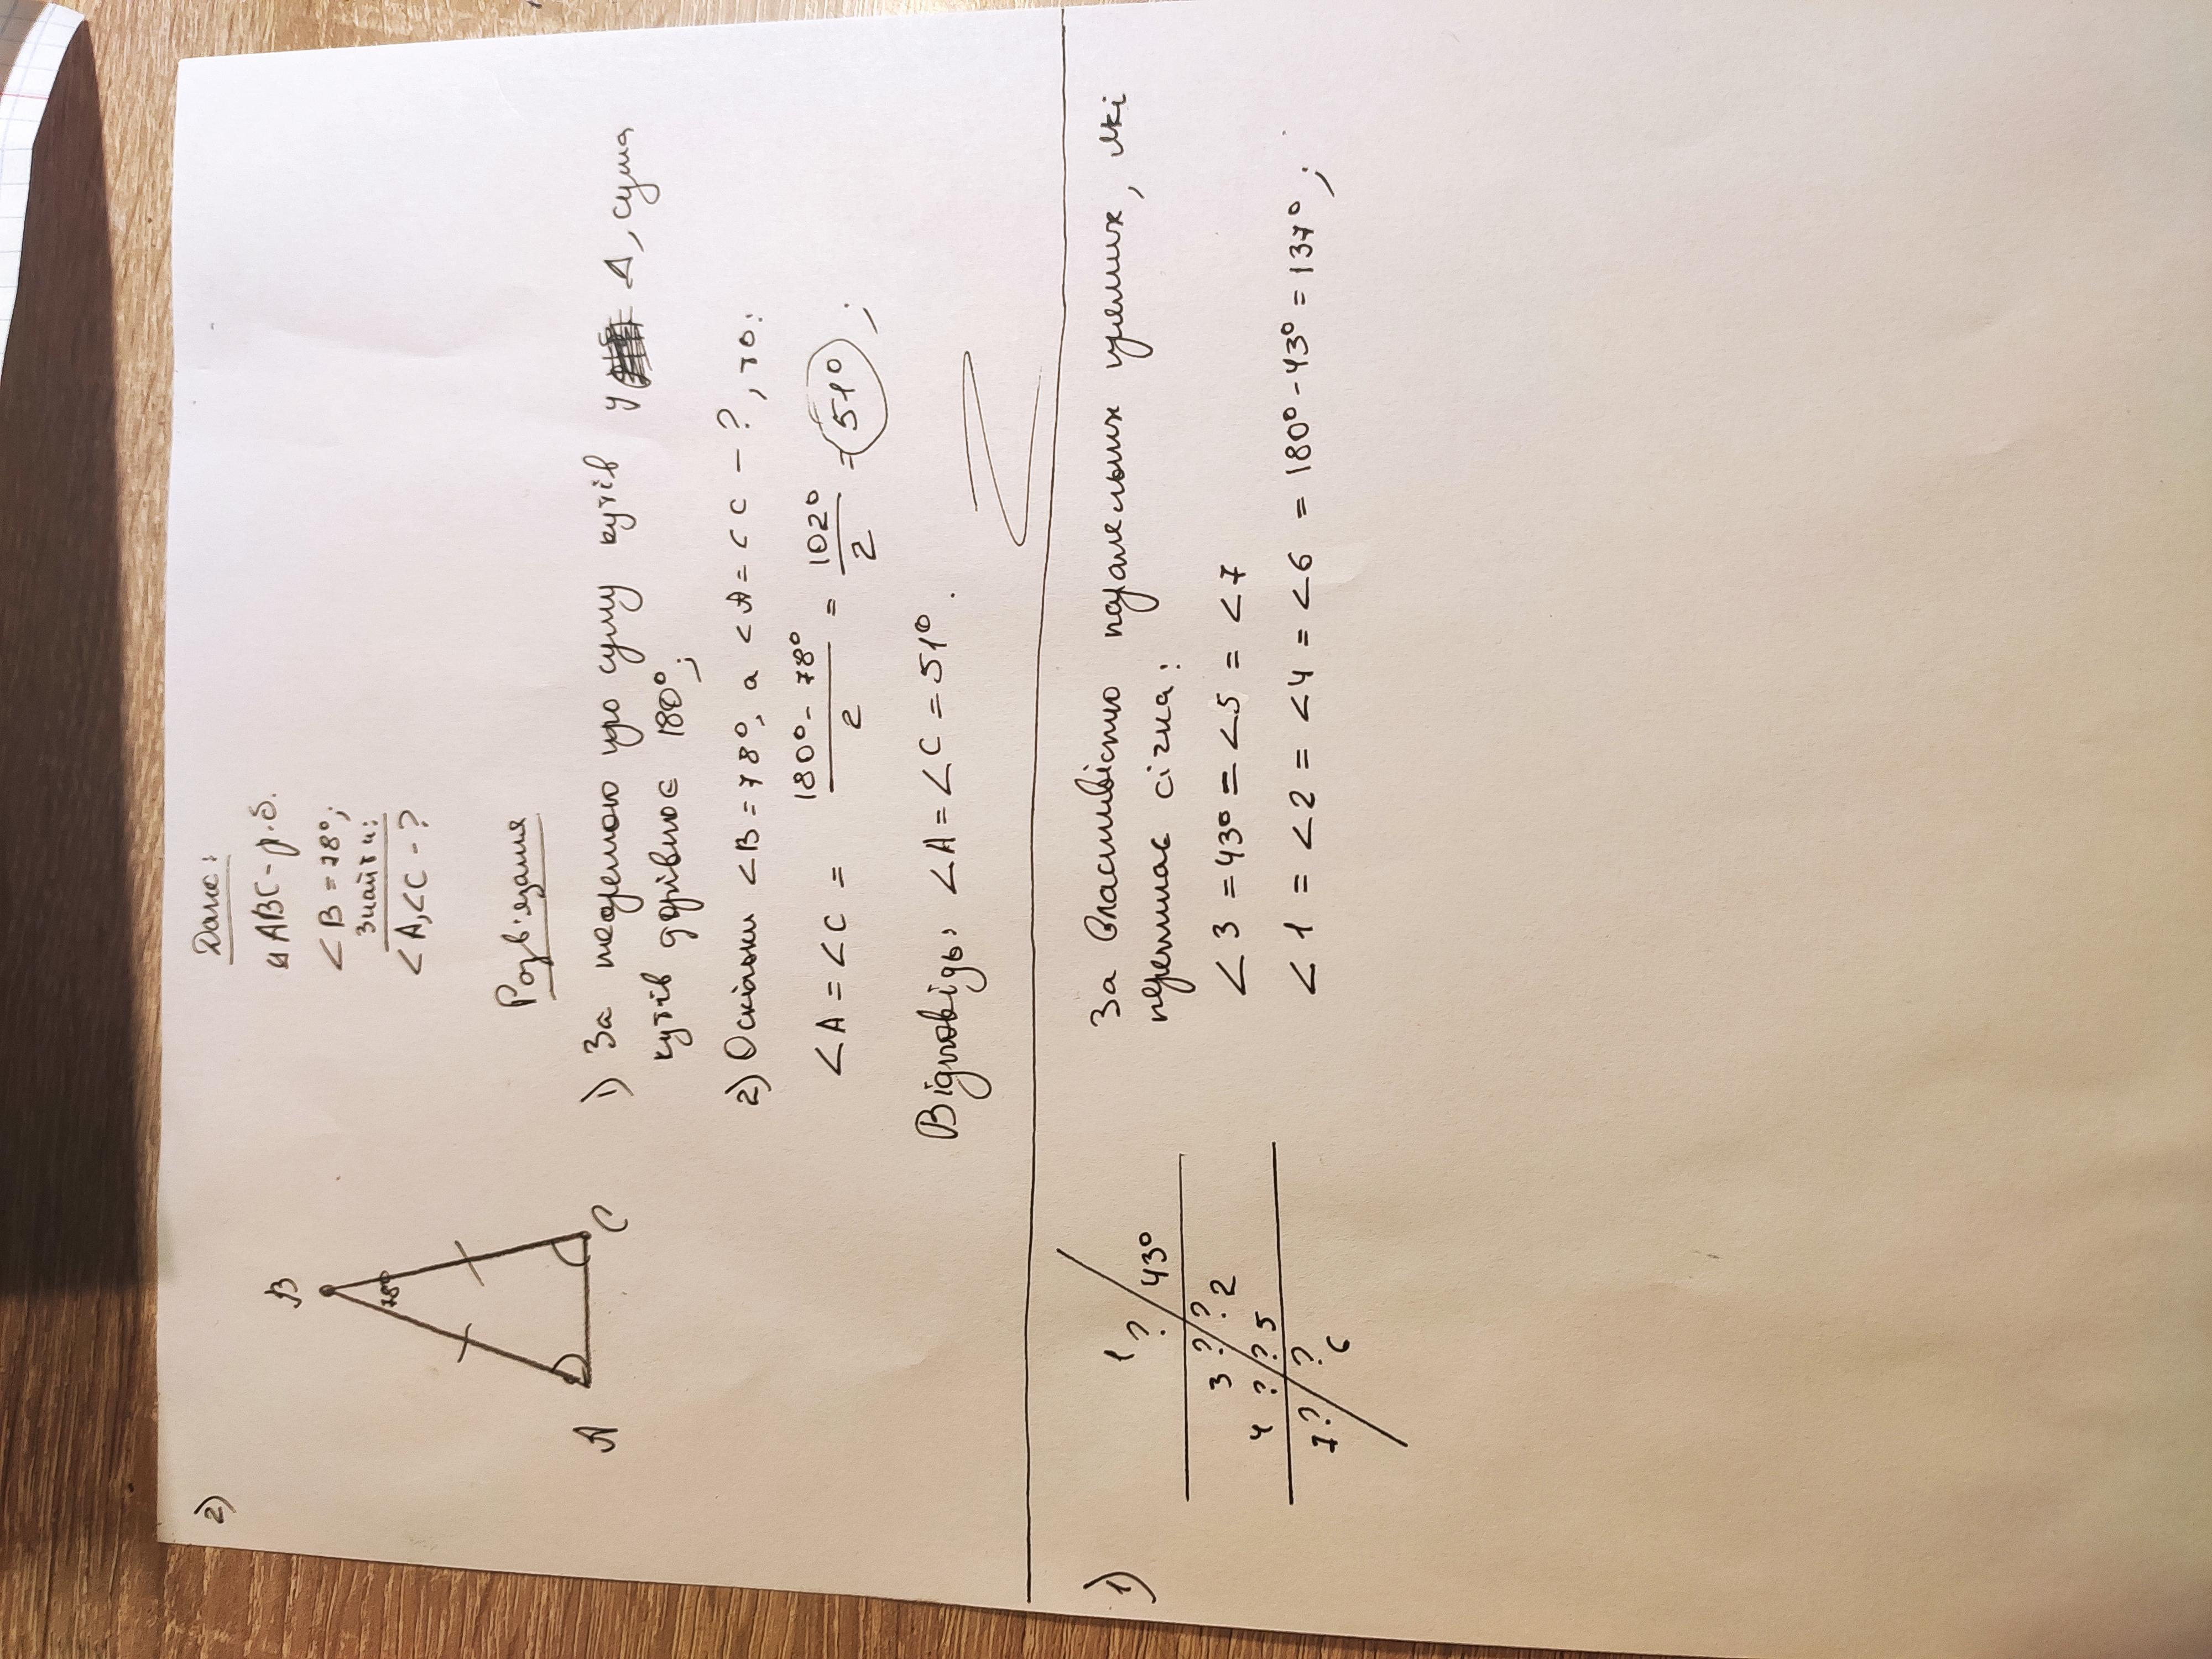 2)
Дано:
△ABC - р.б.
∠B = 78°;
Знайти:
∠A, ∠C - ?
B
78°
A
C
Розв'язання
1) За теоремою про суму кутів у Δ, сума
кутів дорівнює 180°;
2) Оскільки ∠B = 78°, а ∠A = ∠C - ?, то:
∠A = ∠C = (180° - 78°)/2 = 102°/2 = 51°;
Відповідь: ∠A = ∠C = 51°.
1)
1 ? 43°
3 ? ? 2
4 ? ? 5
7 ? ? 6
За властивістю паралельних прямих, які
перетинає січна:
∠3 = 43° = ∠5 = ∠7
∠1 = ∠2 = ∠4 = ∠6 = 180° - 43° = 137°;